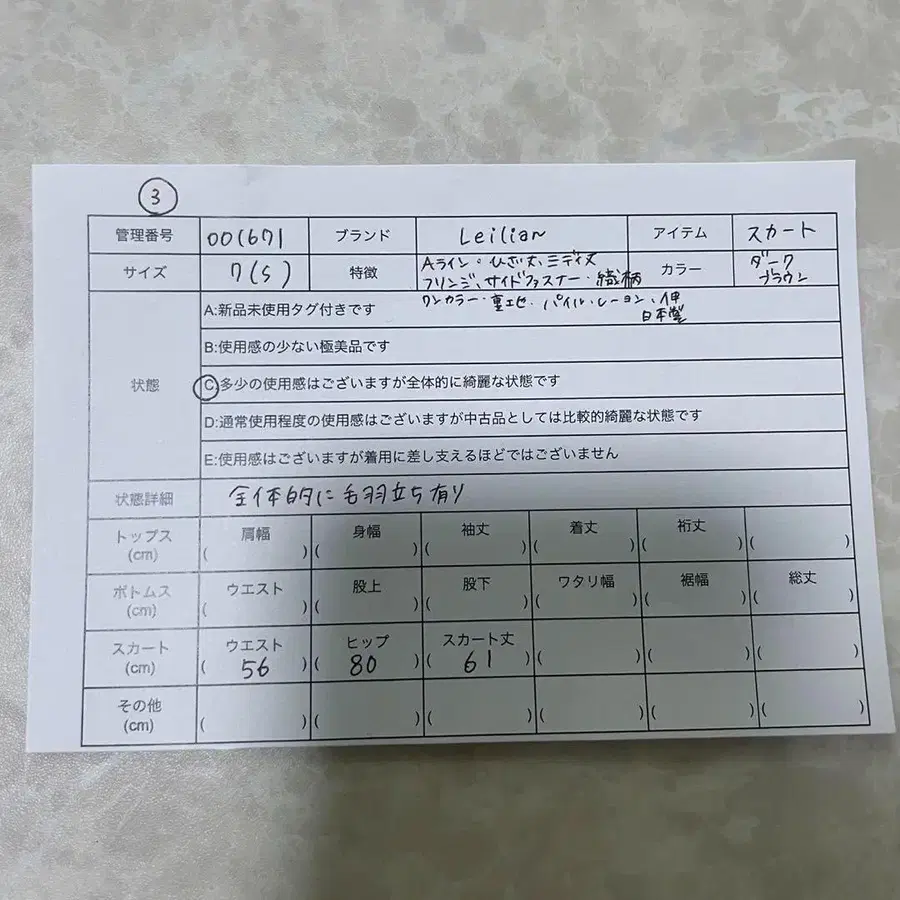 3
管理番号 001671 ブランド Leilian アイテム スカート
サイズ 7(S) 特徴 Aライン・ひざ丈、ミディ丈 カラー ダーク
フリンジ、サイドファスナー・織柄 ブラウン
ワンカラー・裏地・パイル・レーヨン、
日本製
状態
A:新品未使用タグ付きです
B:使用感の少ない極美品です
C:多少の使用感はございますが全体的に綺麗な状態です
D:通常使用程度の使用感はございますが中古品としては比較的綺麗な状態です
E:使用感はございますが着用に差し支えるほどではございません
状態詳細 全体的に毛羽立ち有り
トップス 肩幅 身幅 袖丈 着丈 裄丈
(cm) ( ) ( ) ( ) ( ) ( ) ( )
ボトムス ウエスト 股上 股下 ワタリ幅 裾幅 総丈
(cm) ( ) ( ) ( ) ( ) ( ) ( )
スカート ウエスト ヒップ スカート丈
(cm) ( 56 ) ( 80 ) ( 61 ) ( ) ( ) ( )
その他
(cm) ( ) ( ) ( ) ( ) ( ) ( )